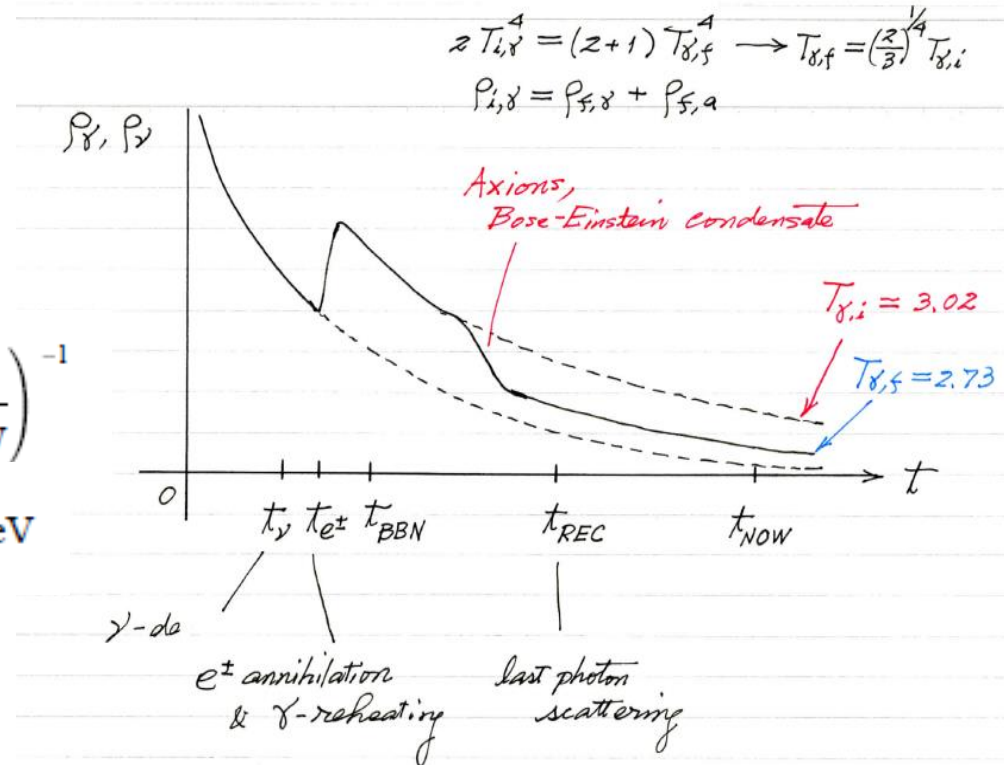 2 T_{i,γ}^4 = (2+1) T_{γ,f}^4 → T_{γ,f} = (2/3)^{1/4} T_{γ,i}
ρ_{i,γ} = ρ_{f,γ} + ρ_{f,a}
ρ_γ, ρ_ν
Axions,
Bose-Einstein condensate
T_{γ,i} = 3.02
T_{γ,f} = 2.73
)^{-1}
eV
0
t
t_ν t_{e±} t_{BBN} t_{REC} t_{NOW}
e± annihilation
& γ-reheating
last photon
scattering